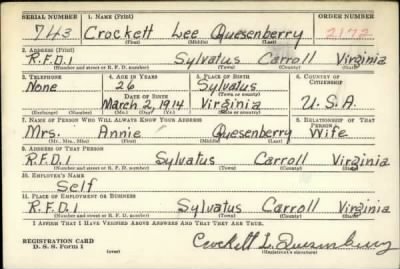 SERIAL NUMBER 1. NAME (Print) ORDER NUMBER
743 Crockett Lee Quesenberry 2172
(First) (Middle) (Last)
2. ADDRESS (Print)
R.F.D.1 Sylvatus Carroll Virginia
(Number and street or R. F. D. number) (Town) (County) (State)
3. TELEPHONE 4. AGE IN YEARS 5. PLACE OF BIRTH 6. COUNTRY OF CITIZENSHIP
None 26 Sylvatus
DATE OF BIRTH (Town or county)
March 2, 1914 Virginia U.S.A.
(Exchange) (Number) (Mo.) (Day) (Yr.) (State or country)
7. NAME OF PERSON WHO WILL ALWAYS KNOW YOUR ADDRESS 8. RELATIONSHIP OF THAT PERSON
Mrs. Annie Quesenberry Wife
(Mr., Mrs., Miss) (First) (Middle) (Last)
9. ADDRESS OF THAT PERSON
R.F.D.1 Sylvatus Carroll Virginia
(Number and street or R. F. D. number) (Town) (County) (State)
10. EMPLOYER'S NAME
Self
11. PLACE OF EMPLOYMENT OR BUSINESS
R.F.D.1 Sylvatus Carroll Virginia
(Number and street or R. F. D. number) (Town) (County) (State)
I AFFIRM THAT I HAVE VERIFIED ABOVE ANSWERS AND THAT THEY ARE TRUE.
REGISTRATION CARD
D. S. S. Form 1 (over) Crockett L. Quesenberry
(Registrant's signature)